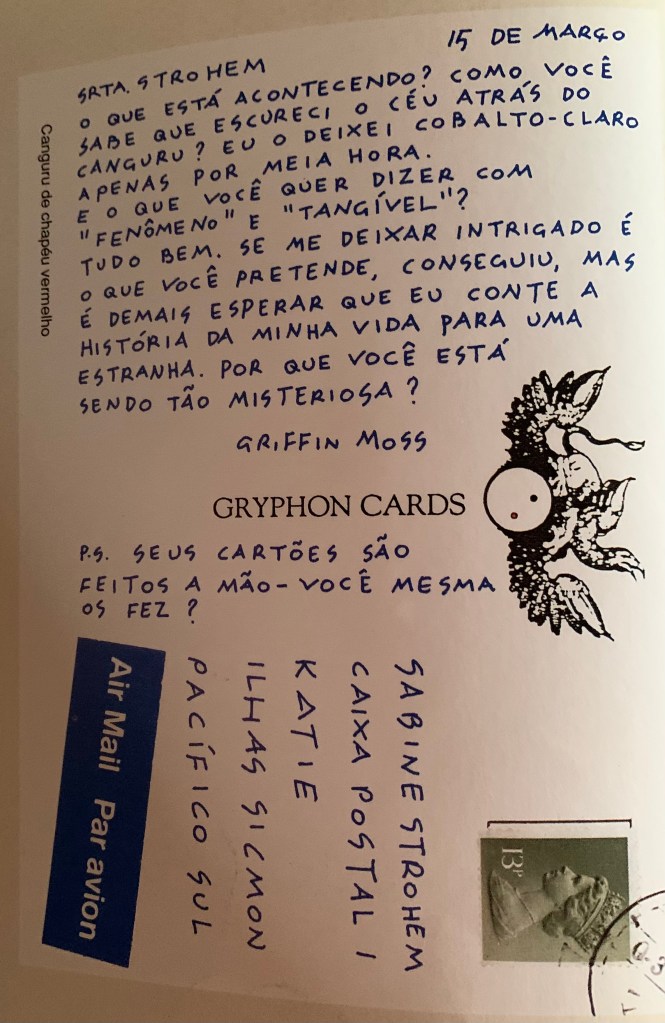 15 DE MARÇO
SRTA. STROHEM
O QUE ESTÁ ACONTECENDO? COMO VOCÊ
SABE QUE ESCURECI O CÉU ATRÁS DO
CANGURU? EU O DEIXEI COBALTO-CLARO
APENAS POR MEIA HORA.
E O QUE VOCÊ QUER DIZER COM
"FENÔMENO" E "TANGÍVEL"?
TUDO BEM. SE ME DEIXAR INTRIGADO É
O QUE VOCÊ PRETENDE, CONSEGUIU, MAS
É DEMAIS ESPERAR QUE EU CONTE A
HISTÓRIA DA MINHA VIDA PARA UMA
ESTRANHA. POR QUE VOCÊ ESTÁ
SENDO TÃO MISTERIOSA?
GRIFFIN MOSS
Canguru de chapéu vermelho
GRYPHON CARDS
P.S. SEUS CARTÕES SÃO
FEITOS A MÃO-VOCÊ MESMA
OS FEZ?
SABINE STROHEM
CAIXA POSTAL 1
KATIE
ILHAS SICMON
PACÍFICO SUL
Air Mail Par avion
13P